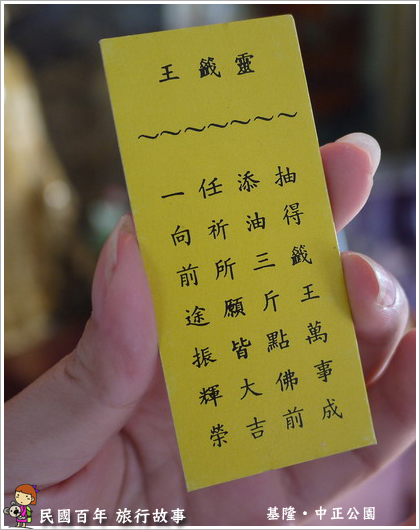 靈籤王
~~~~~~~
抽得籤王萬事成
添油三斤點佛前
任祈所願皆大吉
一向前途振輝榮
民國百年 旅行故事
基隆・中正公園